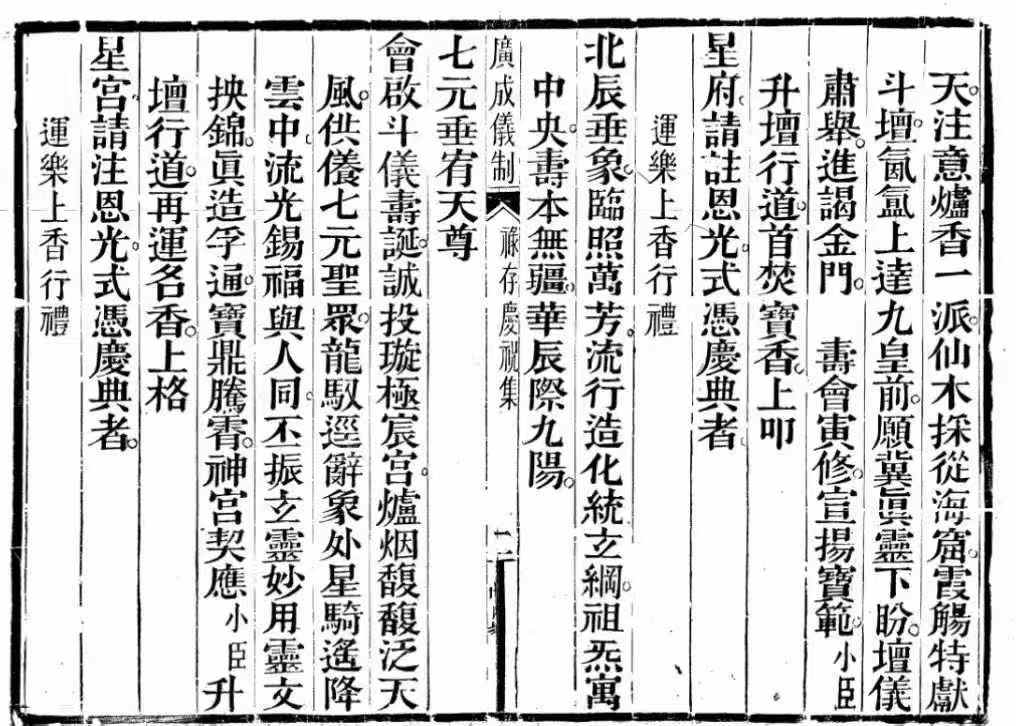 天。注意爐香一派。仙木採從海窟。霞觴特獻
斗壇。氤氳上達九皇前。願冀眞靈下盼。壇儀
肅舉。進謁金門。　壽會寅修。宣揚寶範。小臣
升壇行道。首焚寶香。上叩
星府。請註恩光。式憑慶典者
運樂上香行禮
北辰垂象。臨照萬芳。流行造化統玄綱。祖炁寓
中央。壽本無疆。華辰際九陽。
廣成儀制　祿存慶祝集　二
七元垂宥天尊
會啟斗儀壽誕。誠投璇極宸宮。爐烟馥馥泛天
風。供儀七元聖眾。龍馭逕辭象外星騎遙降
雲中。流光錫福與人同。丕振玄靈妙用靈文
抰錦。眞造孚通。寶鼎騰霄。神宮契應小臣升
壇行道。再運名香。上格
星宮請注恩光。式憑慶典者。
運樂上香行禮